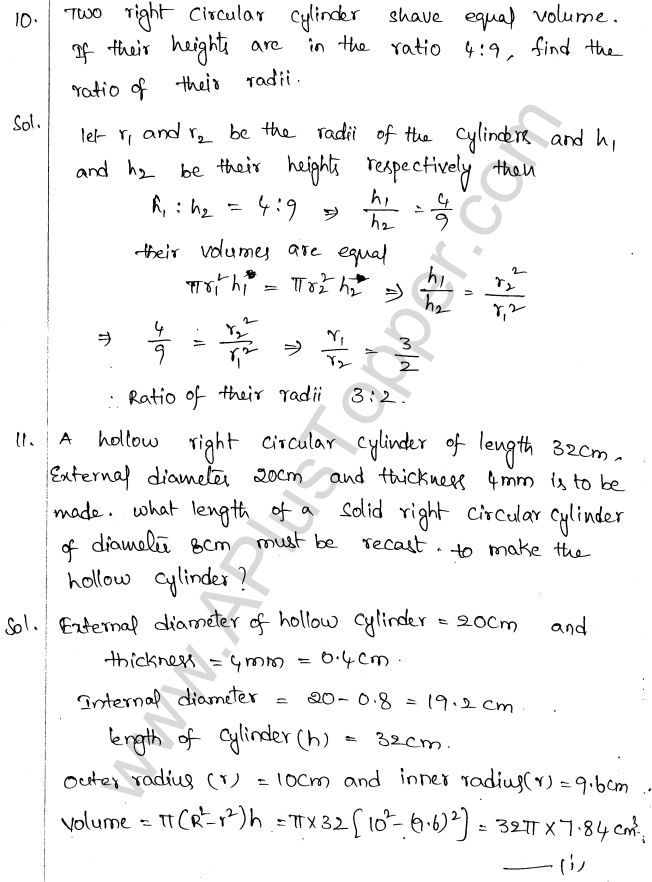 10. Two right circular cylinder shave equal volume.
If their heights are in the ratio 4:9, find the
ratio of their radii.
Sol. let r₁ and r₂ be the radii of the cylinders and h₁
and h₂ be their heights respectively then
h₁ : h₂ = 4:9 ⇒ h₁/h₂ = 4/9
their volumes are equal
πr₁²h₁ = πr₂²h₂ ⇒ h₁/h₂ = r₂²/r₁²
⇒ 4/9 = r₂²/r₁² ⇒ r₁/r₂ = 3/2
∴ Ratio of their radii 3:2.
11. A hollow right circular cylinder of length 32cm,
External diameter 20cm and thickness 4mm is to be
made. what length of a solid right circular cylinder
of diameter 8cm must be recast. to make the
hollow cylinder?
Sol. External diameter of hollow cylinder = 20cm and
thickness = 4mm = 0.4cm.
Internal diameter = 20-0.8 = 19.2 cm.
length of cylinder(h) = 32cm.
outer radius (r) = 10cm and inner radius(r) = 9.6cm.
volume = π(R²-r²)h = π×32[10²-(9.6)²] = 32π×7.84 cm³.
—(i)
www.APlusTopper.com